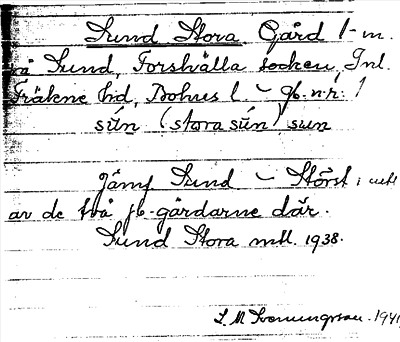 Sund Stora Gård 1 m.
på Sund, Forshälla socken, Inl.
Fräkne hd, Bohus l – jb.n:r: 1
sún (stora sún) sun
Jämf Sund – Störst i
av de två jb-gårdarne där.
Sund Stora mtl. 1938.
L. M. Svenungsson. 1941